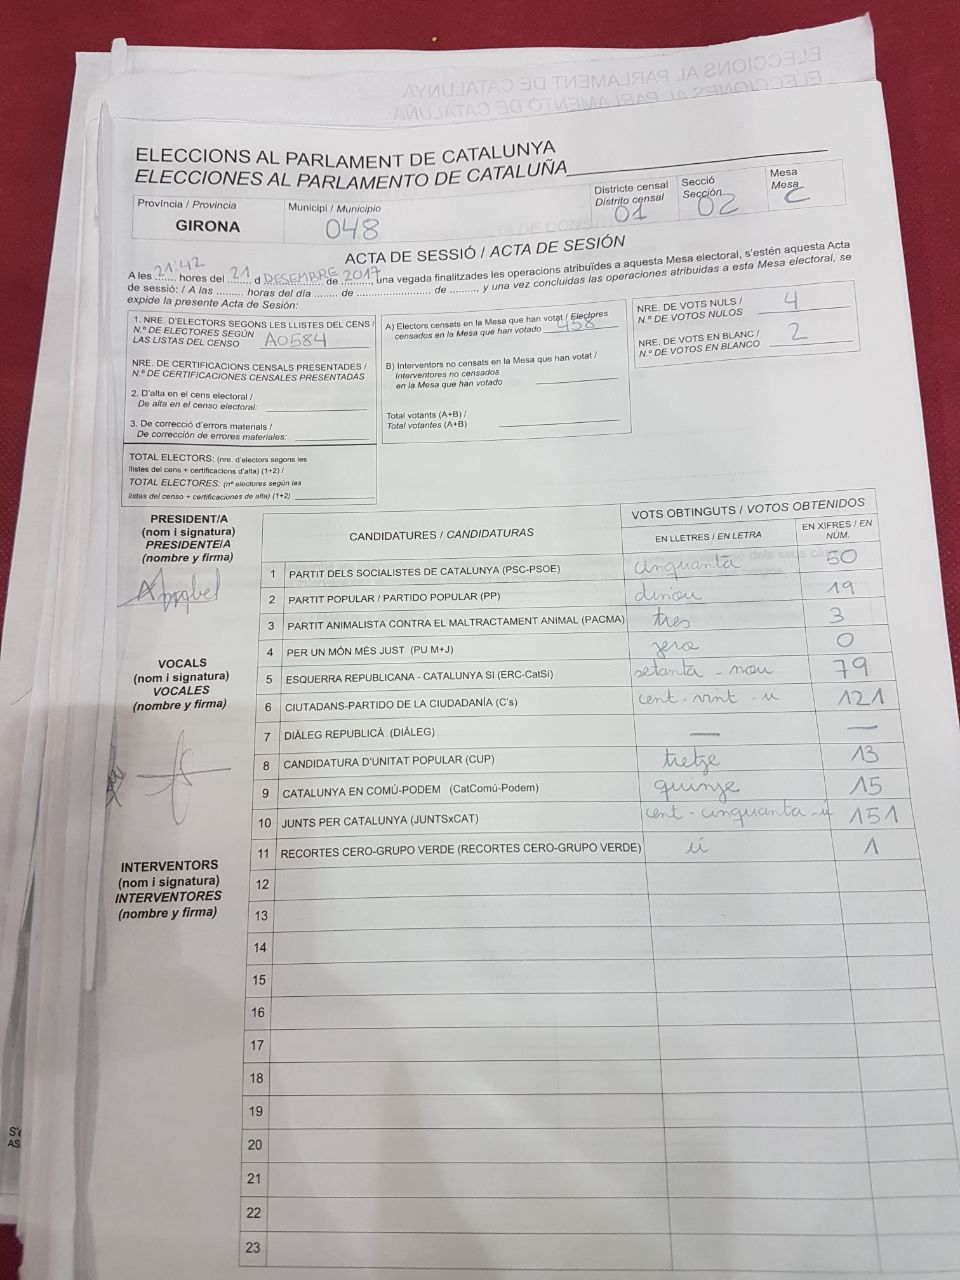 ELECCIONS AL PARLAMENT DE CATALUNYA
ELECCIONES AL PARLAMENTO DE CATALUÑA
ELECCIONS AL PARLAMENT DE CATALUNYA
ELECCIONES AL PARLAMENTO DE CATALUÑA
Província / Provincia
GIRONA
Municipi / Municipio
048
Districte censal
Distrito censal
01
Secció
Sección
02
Mesa
Mesa
C
ACTA DE SESSIÓ / ACTA DE SESIÓN
A les 21:42 hores del 21 d DESEMBRE de 2017, una vegada finalitzades les operacions atribuïdes a aquesta Mesa electoral, s'estén aquesta Acta
de sessió: / A las ......... horas del día ........ de ........................ de ........., y una vez concluidas las operaciones atribuidas a esta Mesa electoral, se
expide la presente Acta de Sesión:
1. NRE. D'ELECTORS SEGONS LES LLISTES DEL CENS /
N.º DE ELECTORES SEGÚN
LAS LISTAS DEL CENSO
NRE. DE CERTIFICACIONS CENSALS PRESENTADES /
N.º DE CERTIFICACIONES CENSALES PRESENTADAS
2. D'alta en el cens electoral /
De alta en el censo electoral:
3. De correcció d'errors materials /
De corrección de errores materiales:
TOTAL ELECTORS: (nre. d'electors segons les
llistes del cens + certificacions d'alta) (1+2) /
TOTAL ELECTORES: (nº electores según las
listas del censo + certificaciones de alta) (1+2)
A) Electors censats en la Mesa que han votat / Electores
censados en la Mesa que han votado 458
B) Interventors no censats en la Mesa que han votat /
Interventores no censados
en la Mesa que han votado
Total votants (A+B) /
Total votantes (A+B)
NRE. DE VOTS NULS /
N.º DE VOTOS NULOS 4
NRE. DE VOTS EN BLANC /
N.º DE VOTOS EN BLANCO 2
PRESIDENT/A
(nom i signatura)
PRESIDENTE/A
(nombre y firma)
VOCALS
(nom i signatura)
VOCALES
(nombre y firma)
INTERVENTORS
(nom i signatura)
INTERVENTORES
(nombre y firma)
CANDIDATURES / CANDIDATURAS
VOTS OBTINGUTS / VOTOS OBTENIDOS
EN LLETRES / EN LETRA
EN XIFRES / EN
NÚM.
1 PARTIT DELS SOCIALISTES DE CATALUNYA (PSC-PSOE) cinquanta 50
2 PARTIT POPULAR / PARTIDO POPULAR (PP) dinou 19
3 PARTIT ANIMALISTA CONTRA EL MALTRACTAMENT ANIMAL (PACMA) tres 3
4 PER UN MÓN MÉS JUST (PU M+J) zero 0
5 ESQUERRA REPUBLICANA - CATALUNYA SI (ERC-CatSí) setanta - nou 79
6 CIUTADANS-PARTIDO DE LA CIUDADANÍA (C's) cent - vint - u 121
7 DIÀLEG REPUBLICÀ (DIÀLEG) — —
8 CANDIDATURA D'UNITAT POPULAR (CUP) tretze 13
9 CATALUNYA EN COMÚ-PODEM (CatComú-Podem) quinze 15
10 JUNTS PER CATALUNYA (JUNTSxCAT) cent - cinquanta - u 151
11 RECORTES CERO-GRUPO VERDE (RECORTES CERO-GRUPO VERDE) ú 1
12
13
14
15
16
17
18
19
20
21
22
23